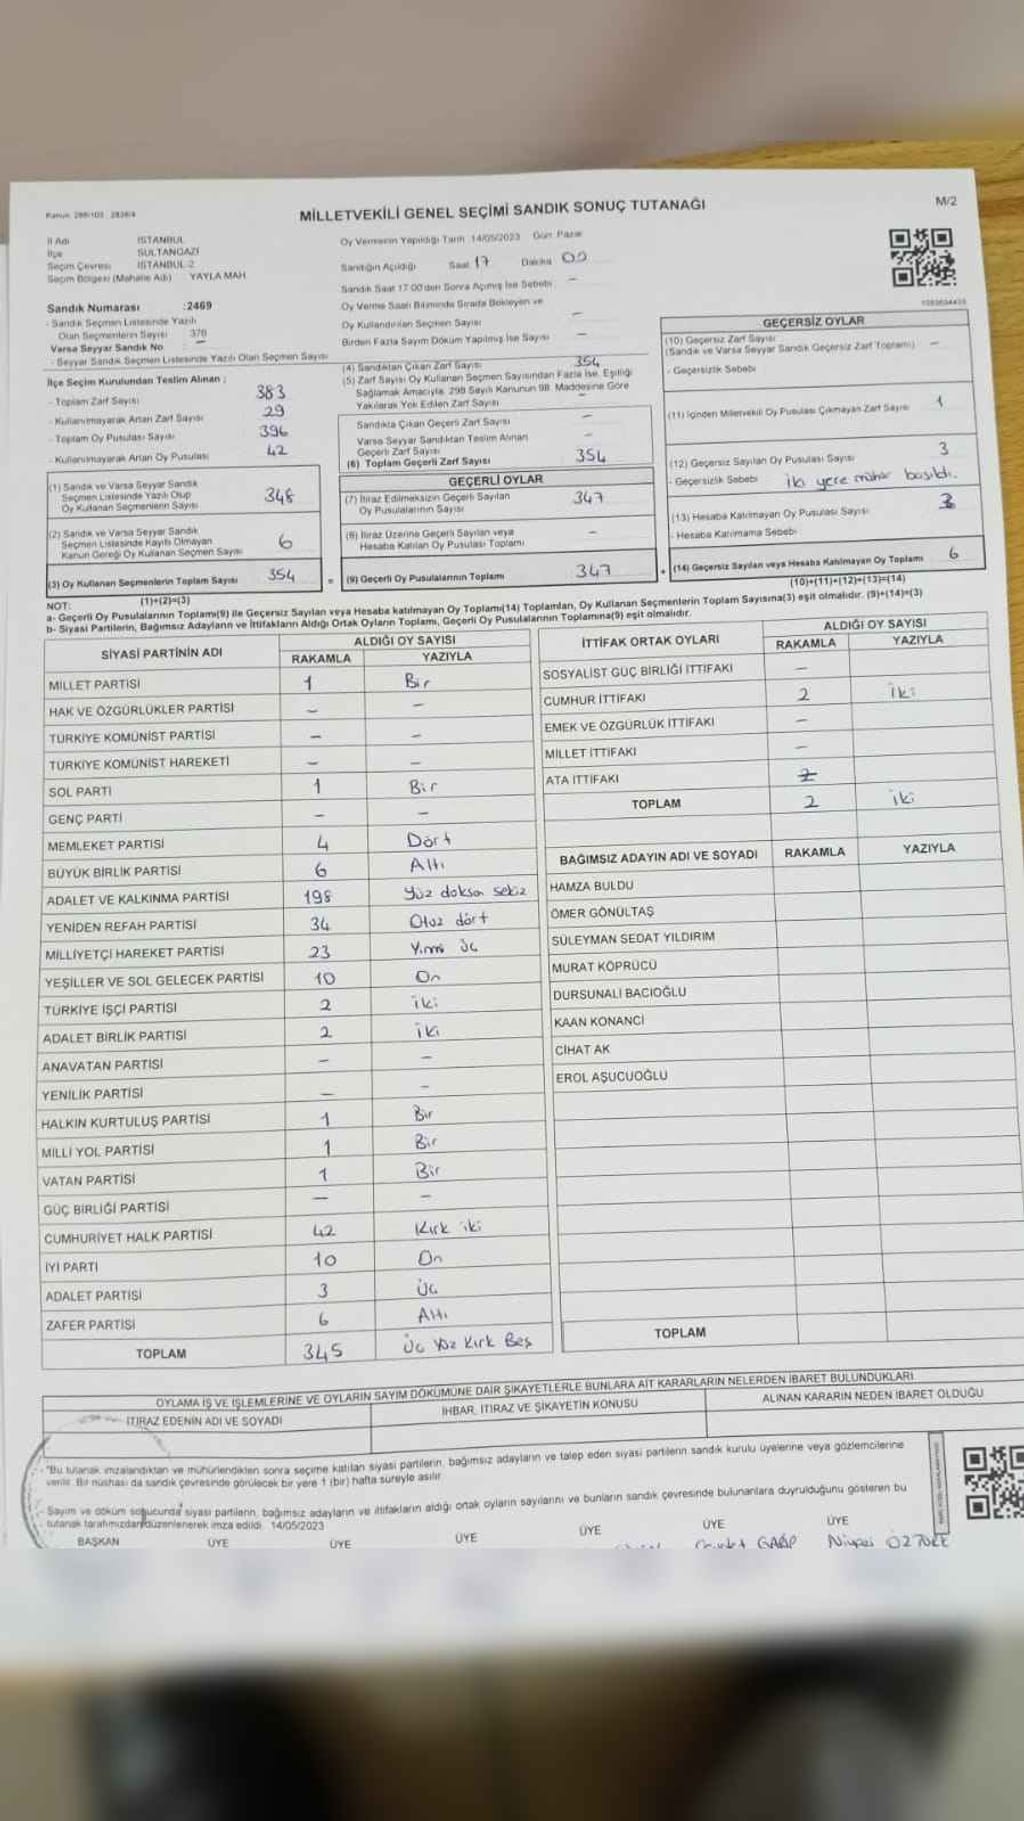 Kanun: 298/105 2839/4
MİLLETVEKİLİ GENEL SEÇİMİ SANDIK SONUÇ TUTANAĞI
M/2
İl Adı İSTANBUL
İlçe SULTANGAZİ
Seçim Çevresi İSTANBUL-2
Seçim Bölgesi (Mahalle Adı) YAYLA MAH.
Oy Vermenin Yapıldığı Tarih :14/05/2023 Gün: Pazar
Sandığın Açıldığı Saat 17 Dakika 00
Sandık Saat 17:00'den Sonra Açılmış İse Sebebi: –
Oy Verme Saati Bitiminde Sırada Bekleyen ve
Oy Kullandırılan Seçmen Sayısı –
Birden Fazla Sayım Döküm Yapılmış İse Sayısı –
Sandık Numarası :2469
- Sandık Seçmen Listesinde Yazılı
Olan Seçmenlerin Sayısı 370
Varsa Seyyar Sandık No –
- Seyyar Sandık Seçmen Listesinde Yazılı Olan Seçmen Sayısı
İlçe Seçim Kurulundan Teslim Alınan :
- Toplam Zarf Sayısı 383
- Kullanılmayarak Artan Zarf Sayısı 29
- Toplam Oy Pusulası Sayısı 396
- Kullanılmayarak Artan Oy Pusulası 42
(1) Sandık ve Varsa Seyyar Sandık
Seçmen Listesinde Yazılı Olup
Oy Kullanan Seçmenlerin Sayısı 348
(2) Sandık ve Varsa Seyyar Sandık
Seçmen Listesinde Kayıtlı Olmayan
Kanun Gereği Oy Kullanan Seçmen Sayısı 6
(3) Oy Kullanan Seçmenlerin Toplam Sayısı 354
(1)+(2)=(3)
(4) Sandıktan Çıkan Zarf Sayısı 354
(5) Zarf Sayısı Oy Kullanan Seçmen Sayısından Fazla İse, Eşitliği
Sağlamak Amacıyla, 298 Sayılı Kanunun 98. Maddesine Göre
Yakılarak Yok Edilen Zarf Sayısı –
Sandıkta Çıkan Geçerli Zarf Sayısı –
Varsa Seyyar Sandıktan Teslim Alınan
Geçerli Zarf Sayısı –
(6) Toplam Geçerli Zarf Sayısı 354
GEÇERLİ OYLAR
(7) İtiraz Edilmeksizin Geçerli Sayılan
Oy Pusulalarının Sayısı 347
(8) İtiraz Üzerine Geçerli Sayılan veya
Hesaba Katılan Oy Pusulası Toplamı –
= (9) Geçerli Oy Pusulalarının Toplamı 347 +
GEÇERSİZ OYLAR
(10) Geçersiz Zarf Sayısı
(Sandık ve Varsa Seyyar Sandık Geçersiz Zarf Toplamı) –
- Geçersizlik Sebebi
(11) İçinden Milletvekili Oy Pusulası Çıkmayan Zarf Sayısı 1
(12) Geçersiz Sayılan Oy Pusulası Sayısı 3
- Geçersizlik Sebebi iki yere mühür basıldı.
(13) Hesaba Katılmayan Oy Pusulası Sayısı
- Hesaba Katılmama Sebebi
(14) Geçersiz Sayılan veya Hesaba Katılmayan Oy Toplamı 6
(10)+(11)+(12)+(13)=(14)
NOT:
a- Geçerli Oy Pusulalarının Toplamı(9) ile Geçersiz Sayılan veya Hesaba katılmayan Oy Toplamı(14) Toplamları, Oy Kullanan Seçmenlerin Toplam Sayısına(3) eşit olmalıdır. (9)+(14)=(3)
b- Siyasi Partilerin, Bağımsız Adayların ve İttifakların Aldığı Ortak Oyların Toplamı, Geçerli Oy Pusulalarının Toplamına(9) eşit olmalıdır.
SİYASİ PARTİNİN ADI ALDIĞI OY SAYISI
RAKAMLA YAZIYLA
MİLLET PARTİSİ 1 Bir
HAK VE ÖZGÜRLÜKLER PARTİSİ – –
TÜRKİYE KOMÜNİST PARTİSİ – –
TÜRKİYE KOMÜNİST HAREKETİ – –
SOL PARTİ 1 Bir
GENÇ PARTİ – –
MEMLEKET PARTİSİ 4 Dört
BÜYÜK BİRLİK PARTİSİ 6 Altı
ADALET VE KALKINMA PARTİSİ 198 Yüz doksan sekiz
YENİDEN REFAH PARTİSİ 34 Otuz dört
MİLLİYETÇİ HAREKET PARTİSİ 23 Yirmi üç
YEŞİLLER VE SOL GELECEK PARTİSİ 10 On
TÜRKİYE İŞÇİ PARTİSİ 2 iki
ADALET BİRLİK PARTİSİ 2 iki
ANAVATAN PARTİSİ – –
YENİLİK PARTİSİ – –
HALKIN KURTULUŞ PARTİSİ 1 Bir
MİLLİ YOL PARTİSİ 1 Bir
VATAN PARTİSİ 1 Bir
GÜÇ BİRLİĞİ PARTİSİ – –
CUMHURİYET HALK PARTİSİ 42 Kırk iki
İYİ PARTİ 10 On
ADALET PARTİSİ 3 Üç
ZAFER PARTİSİ 6 Altı
TOPLAM 345 Üç Yüz Kırk Beş
İTTİFAK ORTAK OYLARI ALDIĞI OY SAYISI
RAKAMLA YAZIYLA
SOSYALİST GÜÇ BİRLİĞİ İTTİFAKI –
CUMHUR İTTİFAKI 2 iki
EMEK VE ÖZGÜRLÜK İTTİFAKI –
MİLLET İTTİFAKI –
ATA İTTİFAKI
TOPLAM 2 iki
BAĞIMSIZ ADAYIN ADI VE SOYADI RAKAMLA YAZIYLA
HAMZA BULDU
ÖMER GÖNÜLTAŞ
SÜLEYMAN SEDAT YILDIRIM
MURAT KÖPRÜCÜ
DURSUNALİ BACIOĞLU
KAAN KONANCİ
CİHAT AK
EROL AŞUCUOĞLU
TOPLAM
OYLAMA İŞ VE İŞLEMLERİNE VE OYLARIN SAYIM DÖKÜMÜNE DAİR ŞİKAYETLERLE BUNLARA AİT KARARLARIN NELERDEN İBARET BULUNDUKLARI
İTİRAZ EDENİN ADI VE SOYADI İHBAR, İTİRAZ VE ŞİKAYETİN KONUSU ALINAN KARARIN NEDEN İBARET OLDUĞU
"Bu tutanak imzalandıktan ve mühürlendikten sonra seçime katılan siyasi partilerin, bağımsız adayların ve talep eden siyasi partilerin sandık kurulu üyelerine veya gözlemcilerine
verilir. Bir nüshası da sandık çevresinde görülecek bir yere 1 (bir) hafta süreyle asılır.
Sayım ve döküm sonucunda siyasi partilerin, bağımsız adayların ve ittifakların aldığı ortak oyların sayılarını ve bunların sandık çevresinde bulunanlara duyrulduğunu gösteren bu
tutanak tarafımızdan düzenlenerek imza edildi. 14/05/2023
BAŞKAN ÜYE ÜYE ÜYE ÜYE ÜYE ÜYE